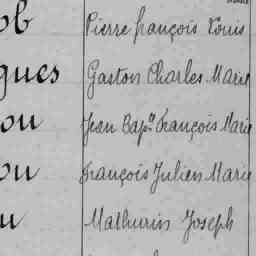 ob Pierre françois Louis
gues Gaston Charles Marie
ou Jean Bapte François Marie
ou François Julien Marie
u Mathurin Joseph